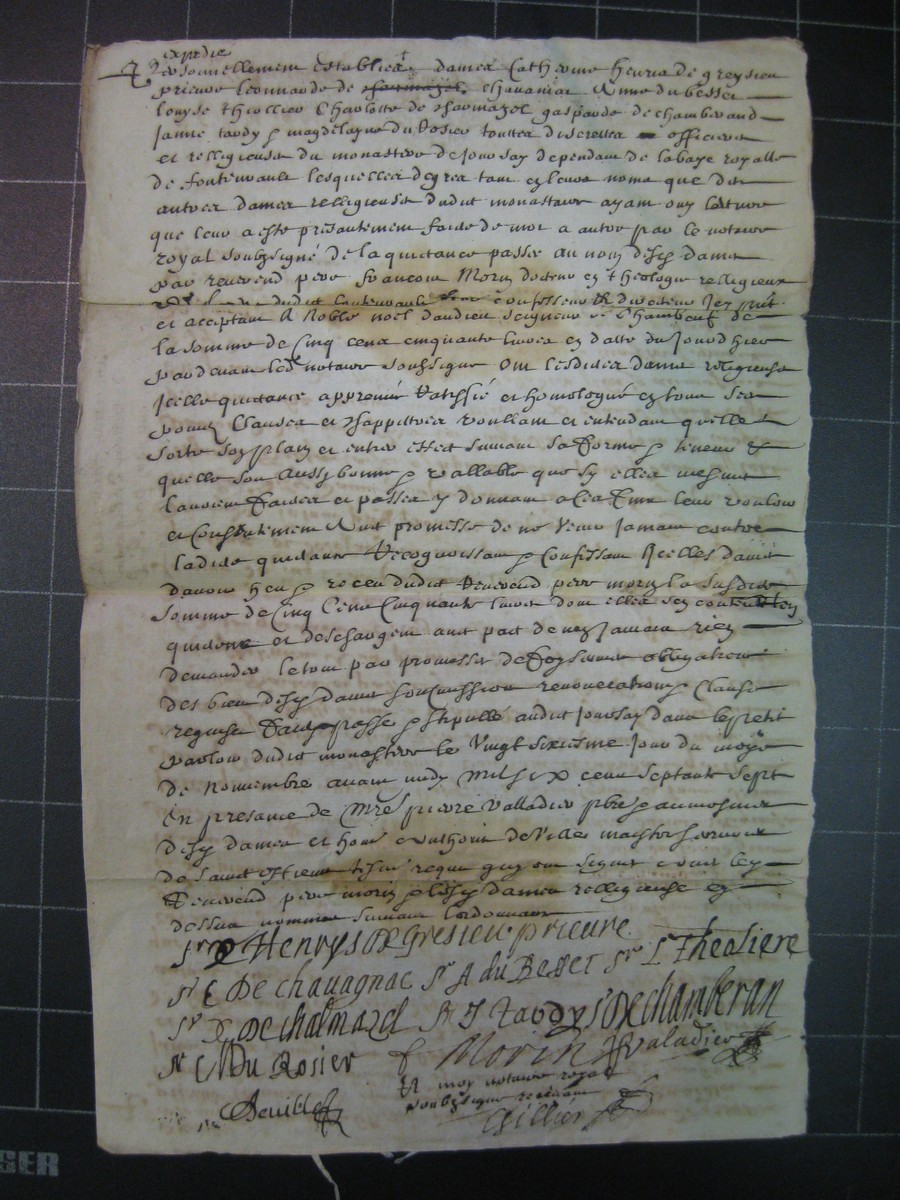 expedie
Personnellement establies dames Catherine henris de greysieu
prieure leonnarde de chalmazel chavaniac Anne du besset
louyse theollier Charlotte de chalmazel gasparde de chamberand
janne tardy & magdelayne du Rosier touttes discrettes officieres
et relligieuses du monastere de Joursay dependant de labaye royalle
de fontevrault lesquelles de gre tant en leurs noms que des
autres dames relligieuses dudit monastere ayant ouy lecture
que leur a este presantement faicte de mot a autre par le notaire
royal soubzsigné de la quitance passée au nom desd dames
par reverend pere françois Morin docteur en theologie relligieux
dudit fontevrault confesseur & directeur Icy pnt
et acceptant A Noble noel daudieu seigneur de Chambeuf de
la somme de Cinq cens cinquante livres en datte du jourdhier
pardevant led notaire soubsigne Ont lesdites dames religieuses
Icelle quitance appreuvé Ratiffié et homologué en tous ses
poincts Clauses et chappittres voullant et entendant quelle
sorte son plain et entier effect suivant sa forme & teneur &
quelle soit aussy bonne & vallable que sy elles mesmes
lavoient faicte et passée y donnant a cette fin leur vouloir
et consentement Avec promesse de ne venir jamais contre
ladite quitance Recognoissant & Confessant Icelles dames
davoir heu & receu dudit Reverend pere morin la susdite
somme de Cinq Cens Cinquante livres dont elles sen contentent
quictent et deschargent avec pact de nen Jamais rien
demander le tout par promesses de foy serment obligation
des biens desd dames soubmission renonciation & Clauses
requises faict passé & stipullé audit Joursay dans le petit
parloir dudit monastere le vingt sixiesme jour du moys
de Novembre avant midy mil six cens septante sept
En presance de Mre pierre valladier pbre & aumosnier
desd dames et honn Anthoine deville maistre serrurier
de Sainct estienne tesmoins requis quy ont signé avec led
Reverend pere morin & lesd dames relligieuses cy
dessus nommées suivant lordonnance
Sr C Henrys De Gresieu prieure
Sr L De chavagnac Sr A du Besset Sr L Theoliere
Sr C De chalmazel Sr J tardy Sr G De chamberan
Sr M Du Rosier f Morin Valadier
Et moy notaire royal
soubzsigne recevant
Deville